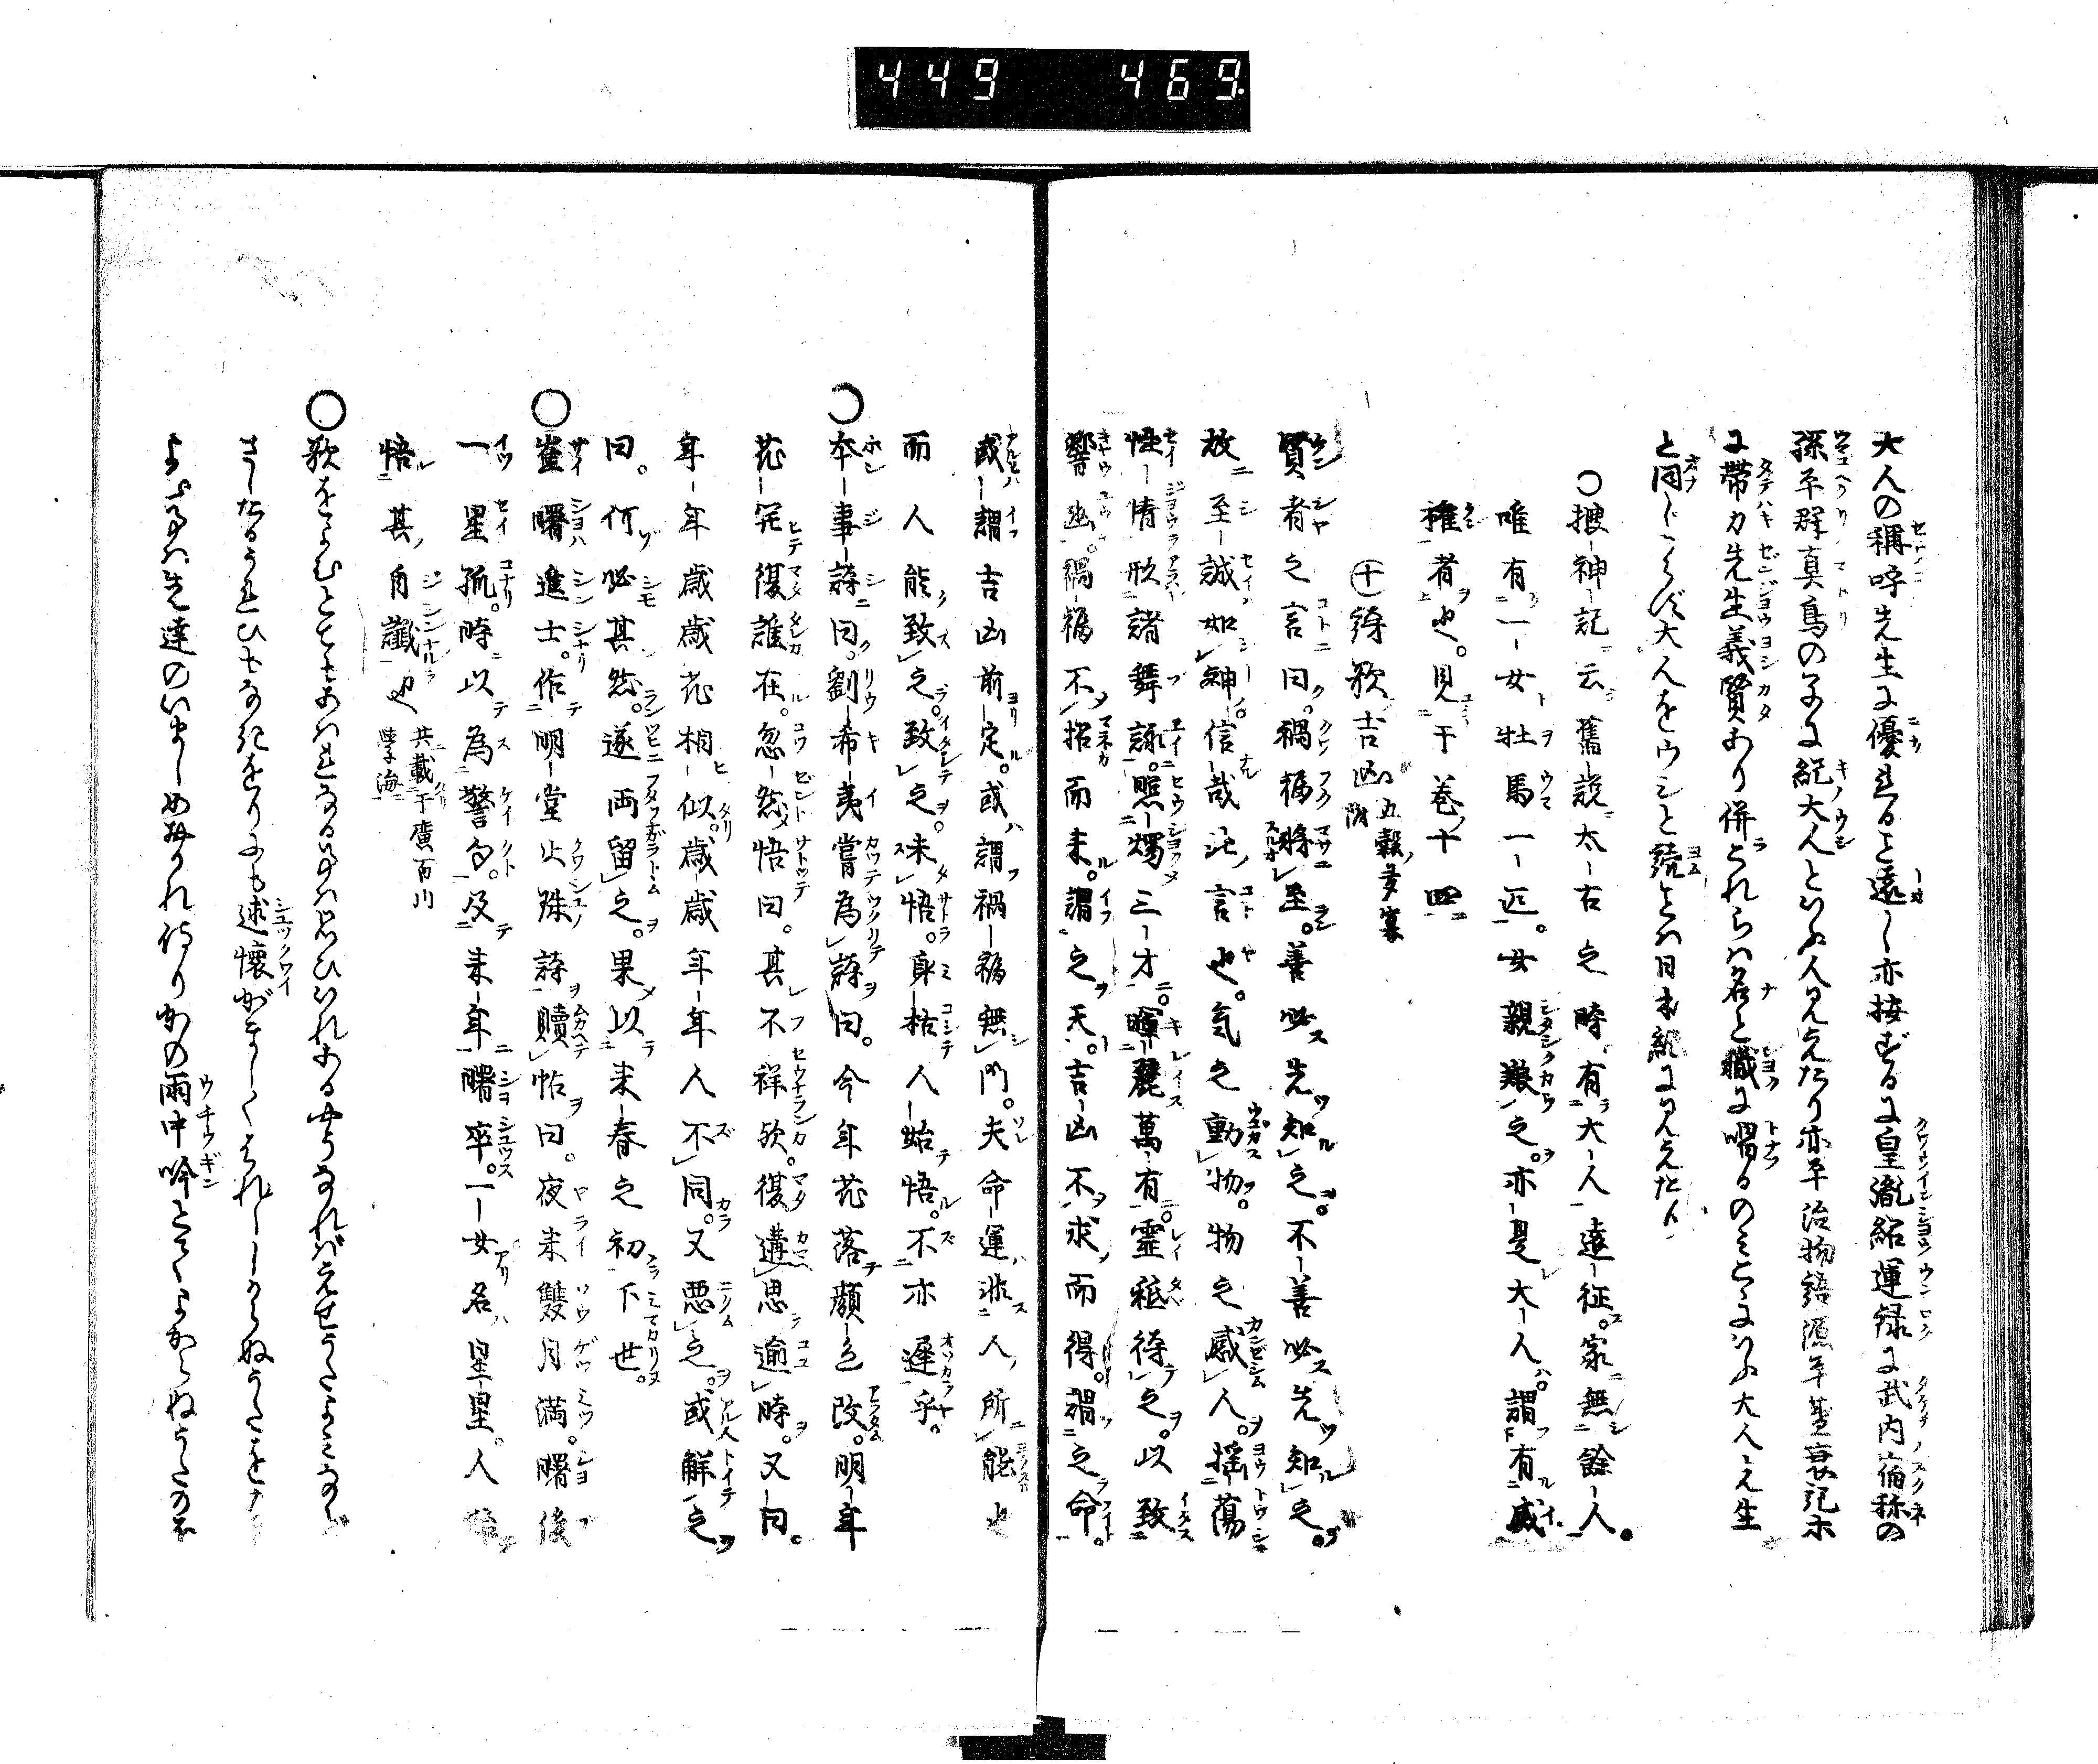 449 469
大人の稱呼先生に優れると遠し亦按ずるに皇胤紹運録に武内宿祢の
孫平群真鳥の字に紀大人といふ人見えたり亦平治物語源平盛衰記ホ
に帶刀先生義賢あり併これらハ名と職に唱るのミこゝにいふ大人先生
と同じからず大人をウシと読とハ日本紀に見えたり
○搜神記云舊説太古之時有大人遠征家無餘人。
唯有一女牡馬一匹。女親養之。亦是大人。謂有威
權者也。見于巻十四
㊉詩歌吉凶 五穀 附
賢者之言曰。禍福將至。善必先知之。不善必先知之。
故至誠如神。信哉此言也。気之動物。物之感人。揺蕩
性情形諸舞詠。照燭三才。暉麗萬有。靈祗待之。以致
響幽。禍福不招而来。謂之天。吉凶不求而得。謂之命。
或謂吉凶前定。或謂禍福無門。夫命運非人所能也
而人能致之。致之。未悟。身枯人始悟。不亦遲乎。
○本事詩曰。劉希夷嘗為詩曰。今年花落顔色改。明年
花開復誰在。忽然悟曰。其不祥欤。復遘思逾時。又曰。
年年歳歳花相似。歳歳年年人不同。又悪之。或解之
曰。何必其然。遂両留之。果以来春之初下世。
○崔曙進士。作明堂火珠詩贖帖曰。夜来雙月満。曙後
一星孤。時以為警句。及来年曙卒。一女名星星。人始
悟其自讖也 共載于廣百川學海
○歌をよむとてもあハれなる事ハ思ひいれあるやうなれバえせうたよミなど
さしたるうれひもなき折をりにも述懷がましくはれしからぬうたを
よむ事ハ先達のいましめおかれ侍りかの雨中吟とてよからぬうたの